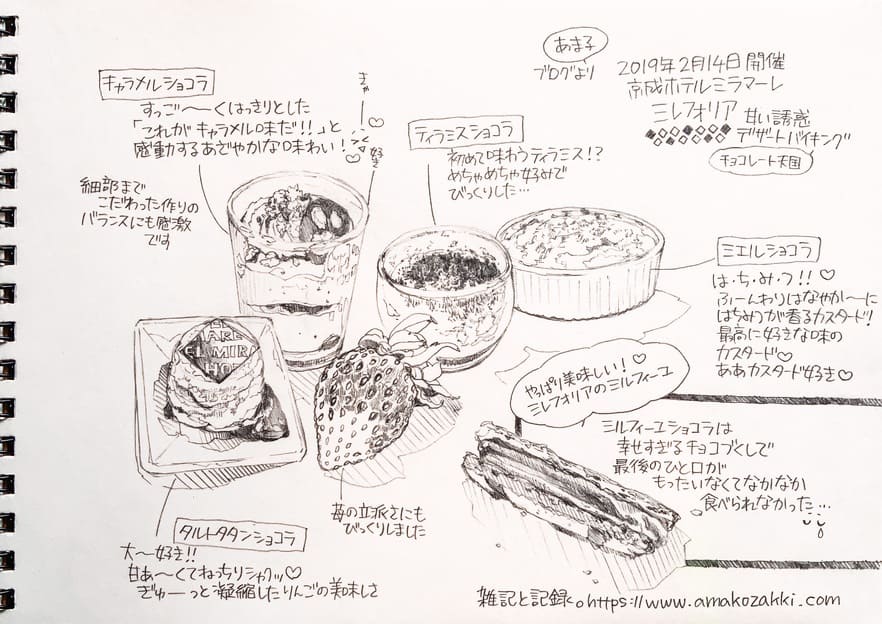 あま子
ブログより
2019年2月14日開催
京成ホテルミラマーレ
ミレフォリア 甘い誘惑
デザートバイキング
チョコレート天国
キャラメルショコラ
すっご〜〜くはっきりとした
「これがキャラメル味だ!!」と
感動するあざやかな味わい!♡
細部まで
こだわった作りの
バランスにも感激
です
ティラミスショコラ
初めて味わうティラミス!?
めちゃめちゃ好みで
びっくりした…
ミエルショコラ
は・ち・み・つ!!♡
ふーんわりはなやか〜に
はちみつが香るカスタード!
最高に好きな味の
カスタード♡
ああカスタード好き♡
やっぱり美味しい!♡
ミレフォリアのミルフィーユ
ミルフィーユショコラは
幸せすぎるチョコづくしで
最後のひと口が
もったいなくてなかなか
食べられなかった…
苺の立派さにも
びっくりしました
タルトタタンショコラ
大〜好き!!
甘あ〜くてねっちりシャクッ♡
ぎゅーっと凝縮したりんごの美味しさ
雑記と記録。https://www.amakozakki.com